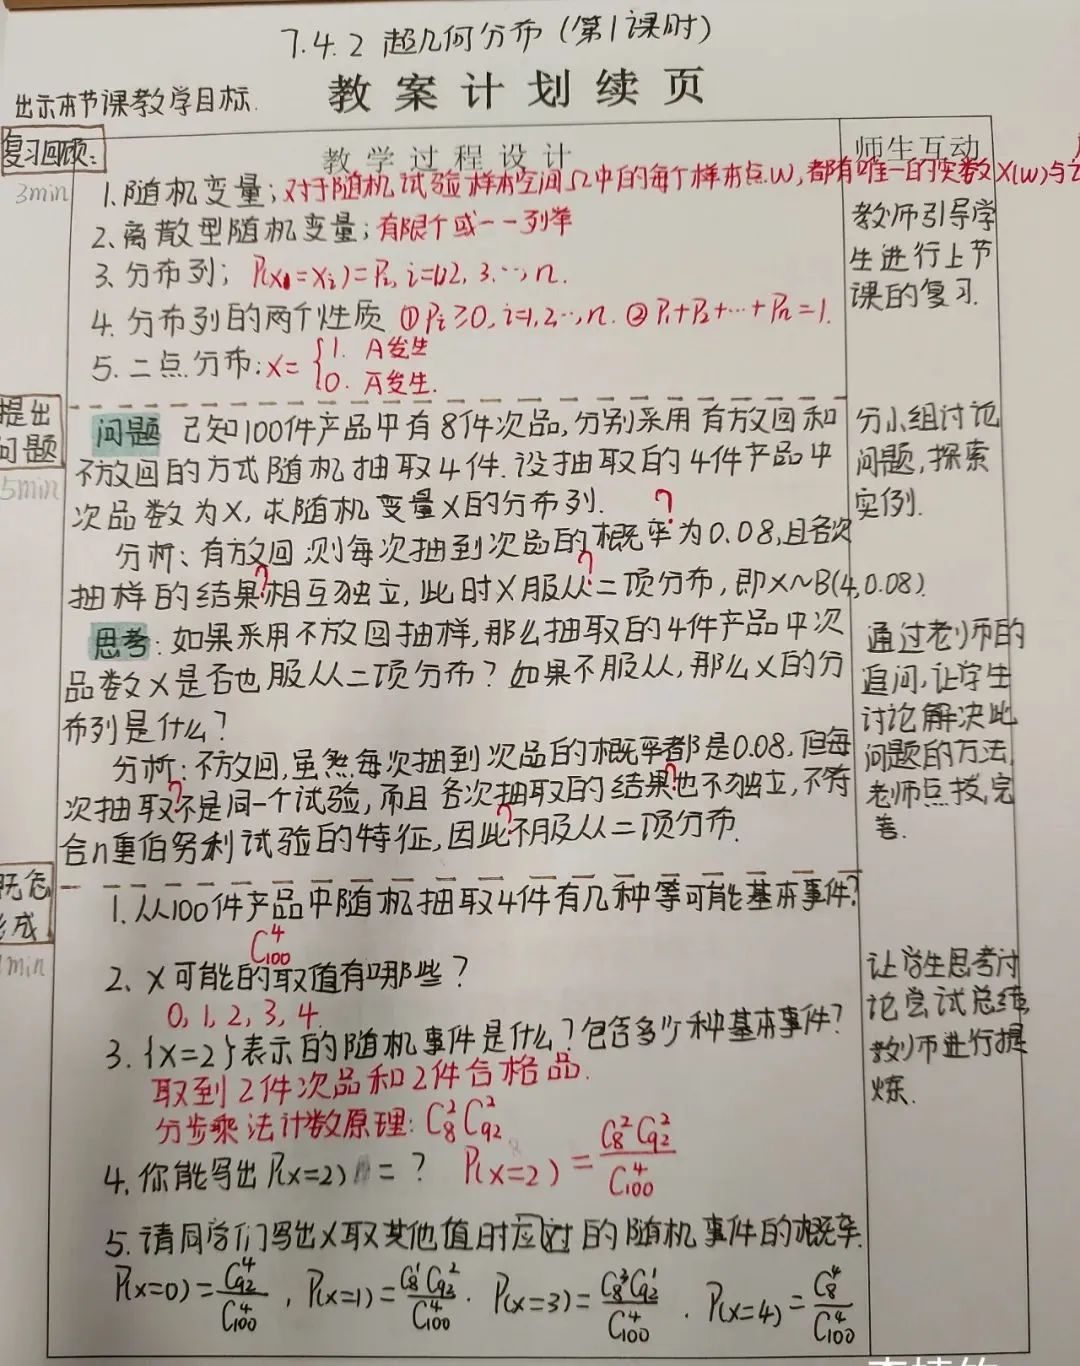 7.4.2 超几何分布(第1课时)
教案计划续页
出示本节课教学目标.
复习回顾:
教学过程设计
师生互动
3min
1.随机变量;对于随机试验样本空间Ω中的每个样本点w,都有唯一的实数X(w)与
2、离散型随机变量;有限个或一一列举
教师引导学
生进行上节
课的复习.
3.分布列; P(X=xi)=Pi, i=1,2,3.…,n.
4.分布列的两个性质 ①Pi≥0,i=1,2,…,n. ②P1+P2+…+Pn=1.
5.二点分布:X= {1. A发生
0. A̅发生.
提出
问题
5min
问题 已知100件产品中有8件次品,分别采用有放回和
不放回的方式随机抽取4件.设抽取的4件产品中
次品数为X,求随机变量X的分布列.
分小组讨论
问题,探索
实例.
?
分析:有放回,则每次抽到次品的概率为0.08,且各次
? ?
抽样的结果相互独立,此时X服从二项分布,即X~B(4,0.08)
思考:如果采用不放回抽样,那么抽取的4件产品中次
品数X是否也服从二项分布?如果不服从,那么X的分
布列是什么?
通过老师的
追问,让学生
讨论解决此
问题的方法,
老师点拨,完
善.
分析:不放回,虽然每次抽到次品的概率都是0.08,但每
? ?
次抽取不是同一个试验,而且各次抽取的结果也不独立,不符
?
合n重伯努利试验的特征,因此不服从二项分布.
成
min
1.从100件产品中随机抽取4件有几种等可能基本事件?
C₁₀₀⁴
2、X可能的取值有哪些?
0,1,2,3,4.
3.{X=2}表示的随机事件是什么?包含多少种基本事件?
取到2件次品和2件合格品.
分步乘法计数原理:C₈²C₉₂²
让学生思考讨
论尝试总结,
教师进行提
炼.
4.你能写出P(X=2)=? P(X=2)=C₈²C₉₂²/C₁₀₀⁴
5.请同学们写出X取其他值时应对的随机事件的概率.
P(X=0)=C₉₂⁴/C₁₀₀⁴, P(X=1)=C₈¹C₉₂²/C₁₀₀⁴. P(X=3)=C₈³C₉₂¹/C₁₀₀⁴. P(X=4)=C₈⁴/C₁₀₀⁴